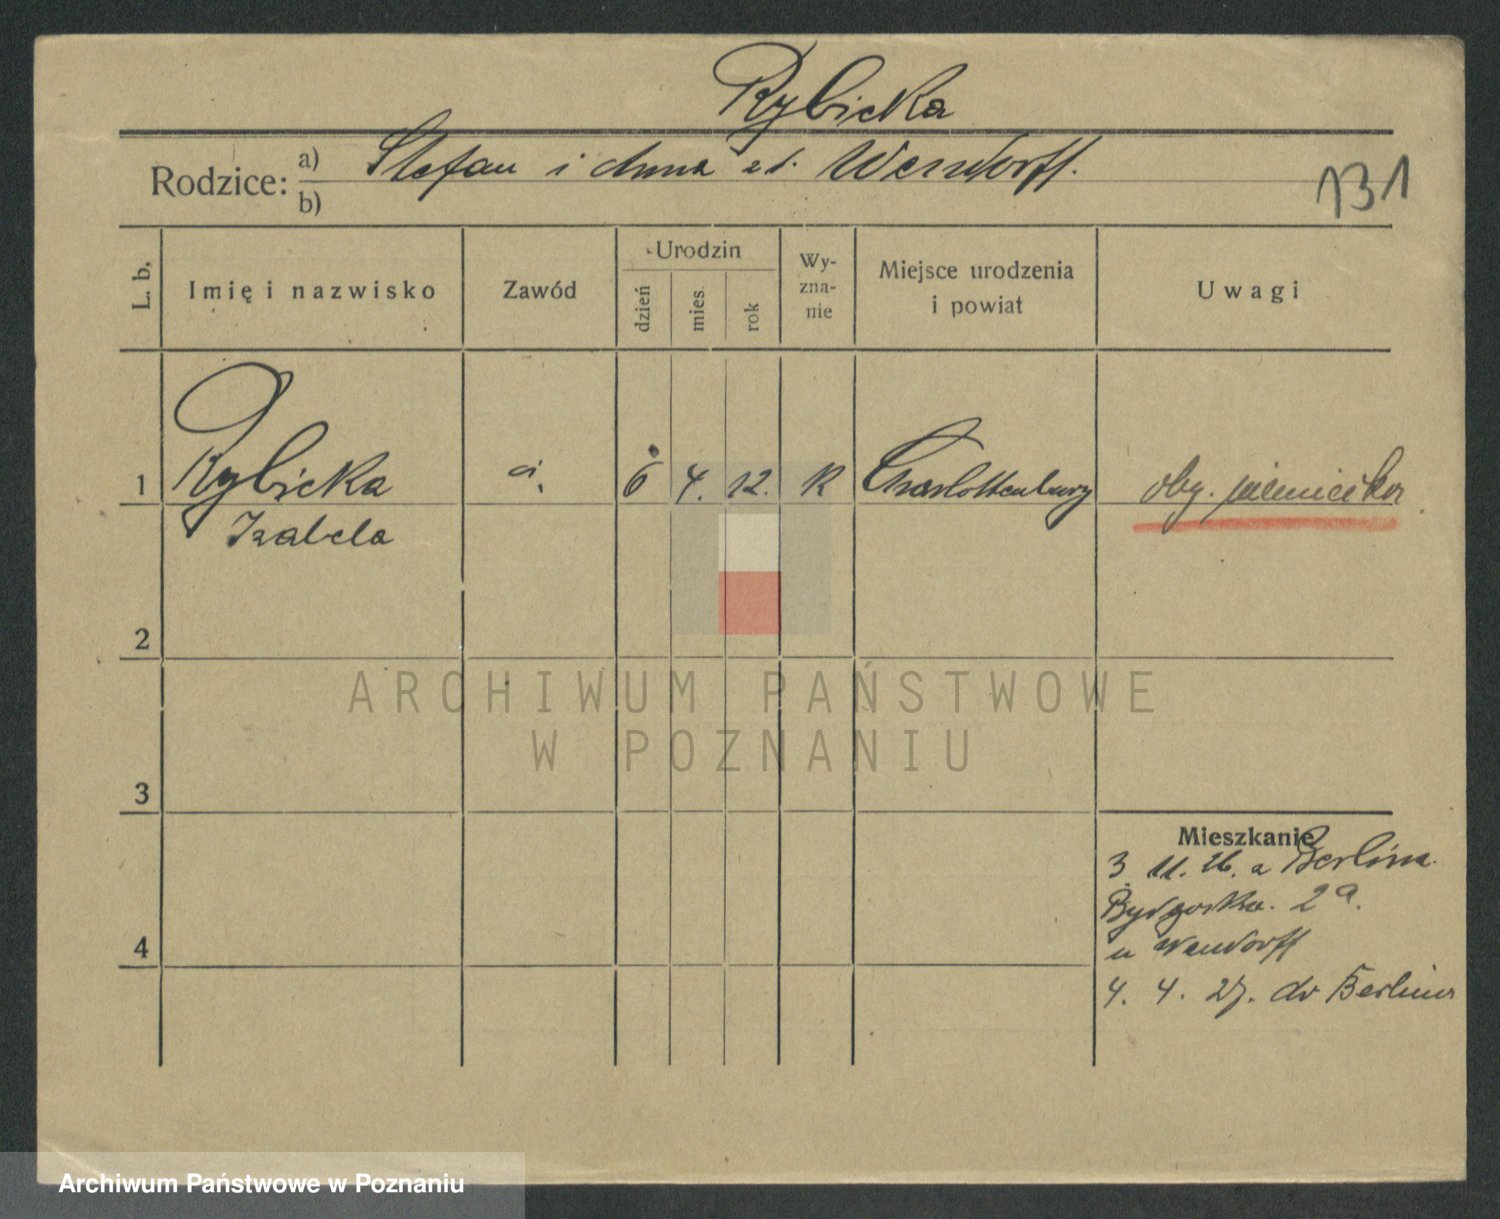 Rybicka
Rodzice: a) Stefan i Anna z d. Wendorff.
b)
131
L. b.
Imię i nazwisko
Zawód
Urodzin
dzień
mies.
rok
Wy-
zna-
nie
Miejsce urodzenia
i powiat
Uwagi
1 Rybicka 6 4. 12. K Charlottenburg oby. niemiecka
Izabela
2
ARCHIWUM PAŃSTWOWE
W POZNANIU
3
Mieszkanie
3. 11. 26. z Berlina.
Bydgoska. 2a.
u Wendorff
4
4. 4. 27. do Berlina
Archiwum Państwowe w Poznaniu